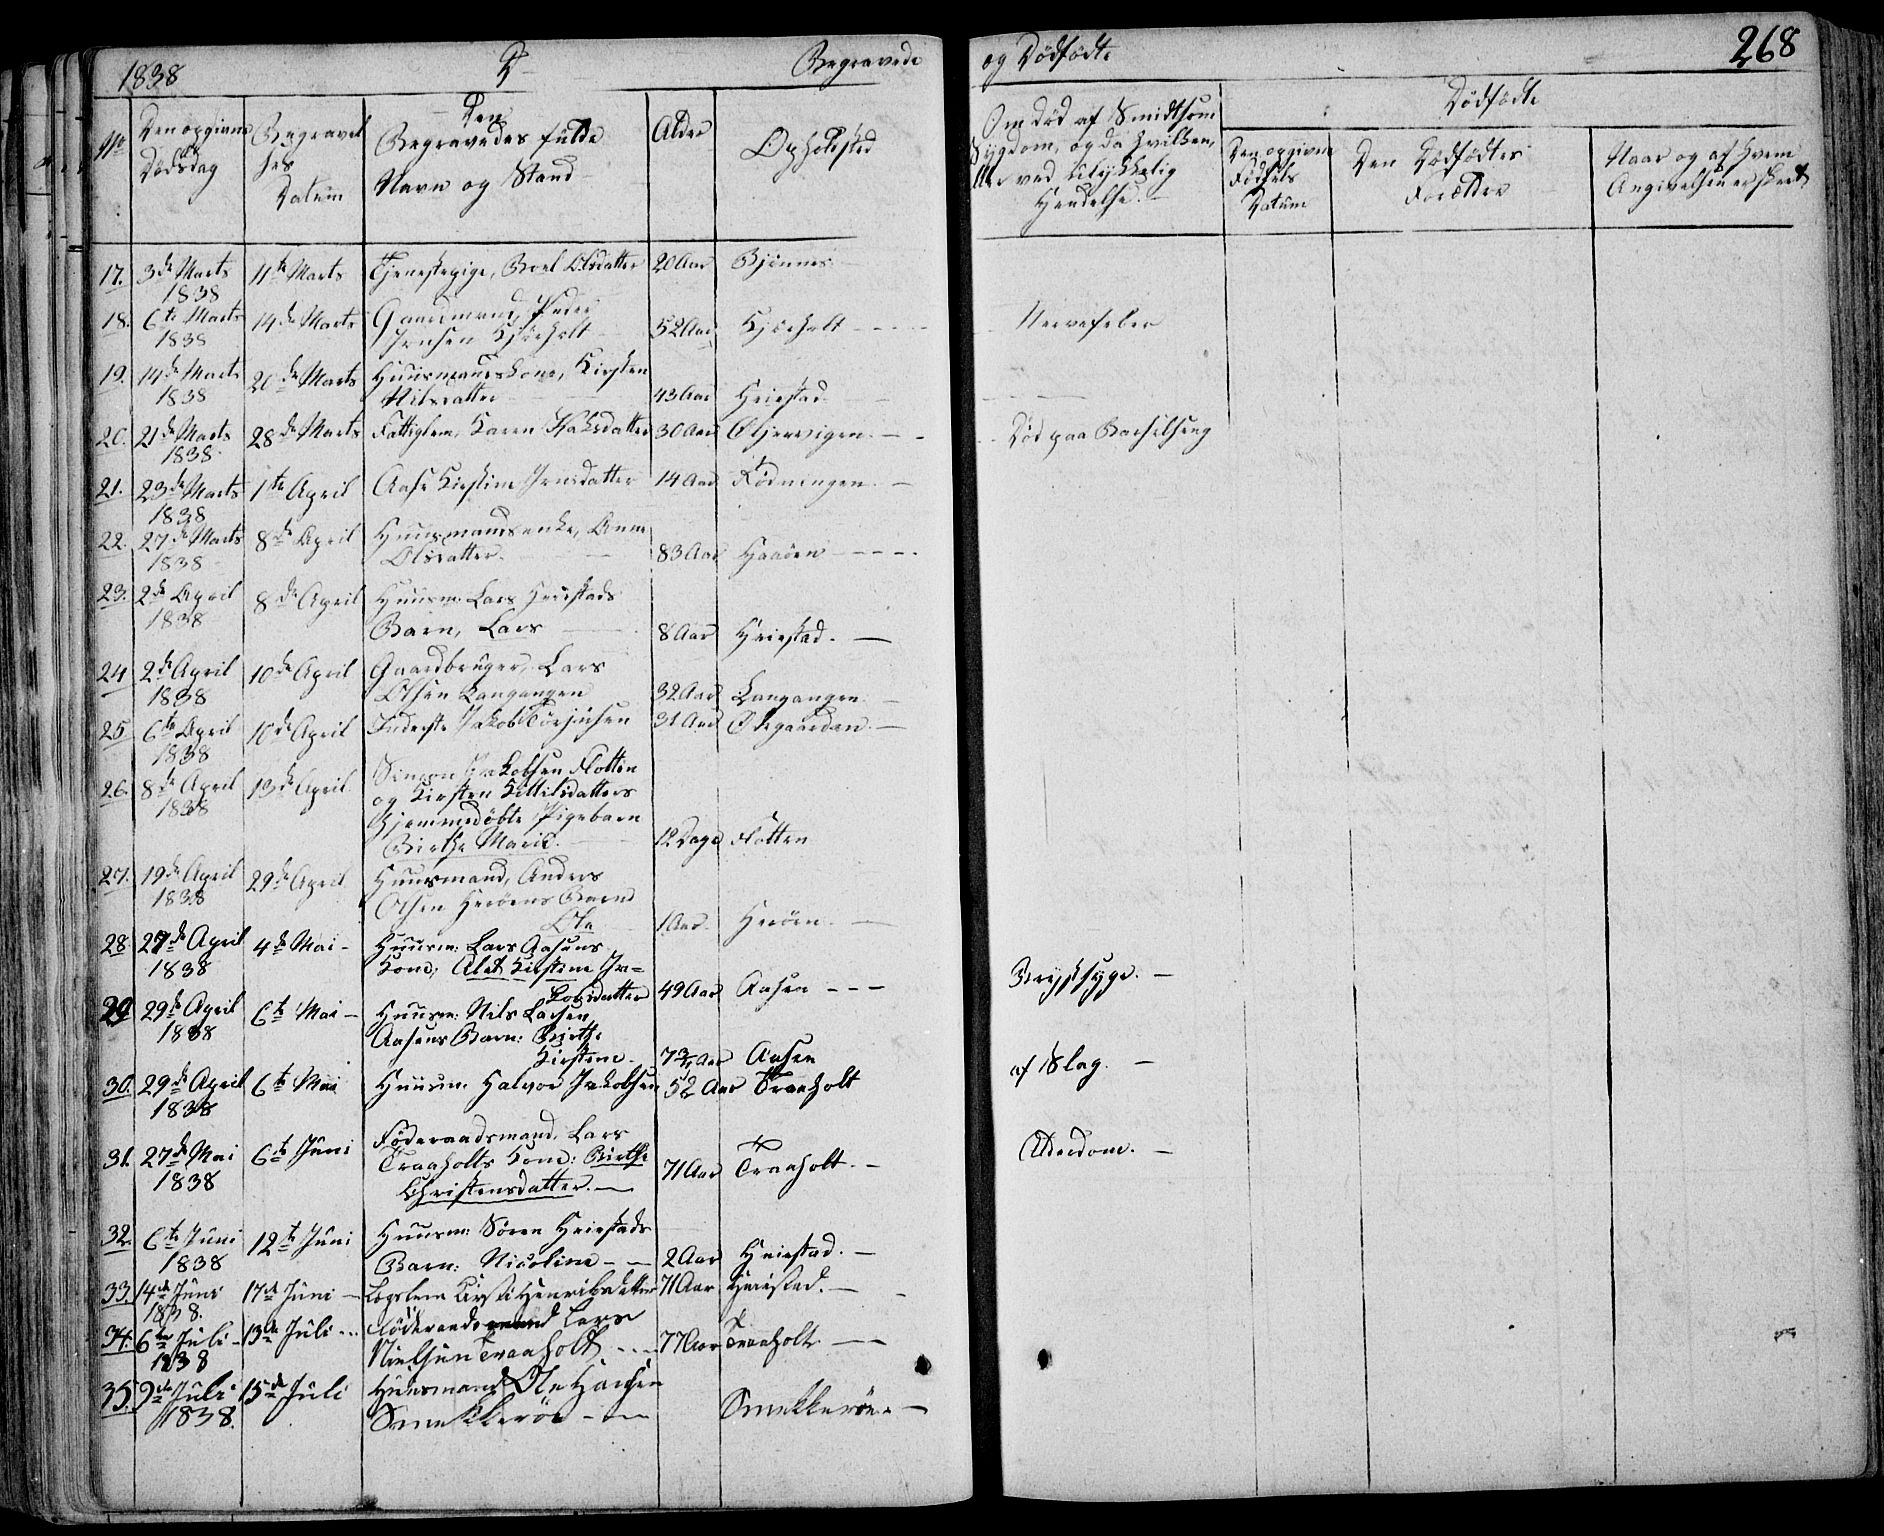 1838 D Begravede og Dødfødte 268
No
Den opgivne Dødsdag
Begravelses Datum
Den Begravedes fulde Navn og Stand
Alder
Opholdsted
Om død af Smidtsom Sygdom, og da hvilken, eller ved Ulykkelig Hendelse.
Dødfødte
Den opgivne Fødsels Datum
Den Dødfødtes Forældre
Naar og af hvem Angivelsen er skeet
17. 3de Marts 1838 11te Marts Tjenestepige, Boel Olsdatter 20 Aar Bjønnes
18. 6te Marts 1838 14de Marts Gaardmand, Peder
Jensen Kjørholt 52 Aar Kjørholt - - - - Nervefeber
19. 14de Marts 1838 20de Marts Huusmandskone, Kirsten
Nilsdatter 43 Aar Heiestad
20. 21de Marts 1838 28de Marts Fattiglem, Karen Isaksdatter 30 Aar Død paa Barselseng
21. 23de Marts 1838 1te April Aase Kirstine Jensdatter 14 Aar Rødningen
22. 27de Marts 1838 8de April Huusmandsenke, Anne
Olsdatter 83 Aar Haaøen - - - -
23. 2de April 1838 8de April Huusm: Lars Heiestads
Barn, Lars 8 Aar Heiestad. —
24 2de April 1838 10de April Gaardbruger, Lars
Olsen Langangen 32 Aar Langangen
25 6te April 1838 10de April Inderste Jakob Torjusen 31 Aar Ødegaarden —
26. 8de April 1838 13de April Simon Jakobsen Flotten
og Kirsten Kittilsdatters
Hjemmedøbte Pigebarn
Birthe Marie. 12 Dage Flotten
27. 19de April 1838 29de April Huusmand, Anders
Olsen Herøens Barn
Ole 1 Aar Herøen
28. 27de April 1838 4de Mai - Huusm: Lars Aasens
Kone; Alet Kirstine Ja=
kobsdatter 49 Aar Aasen - - - Brystsyge. —
29 29de April 1838 6te Mai - Huusm: Nils Larsen
Aasens Barn: Birthe
Kirstine. 7 3/4 Aar Aasen af Slag. —
30. 29de April 1838 6te Mai Huusm: Halvor Jakobsen 52 Aar Traaholt
31. 27de Mai 1838 6te Juni Føderaadsmand, Lars
Traaholts Kone: Birthe
Christensdatter. — 71 Aar Traaholt. — Alderdom. —
32. 6te Juni 1838 12te Juni Huusm: Søren Heiestads
Barn: Nicoline - - 2 Aar Heiestad. —
33. 14de Juni 1838. 17de Juni — Logslem Kirsti Henriksdatter 71 Aar Heiestad. —
34. 6te Juli 1838 13de Juli - - Føderaadsmand Lars
Nielsen Traaholt - - - 77 Aar Traaholt —
35. 9de Juli 1838. 15de Juli Huusmand Ole Hansen
Smekkerøe - — Smekkerøe. —